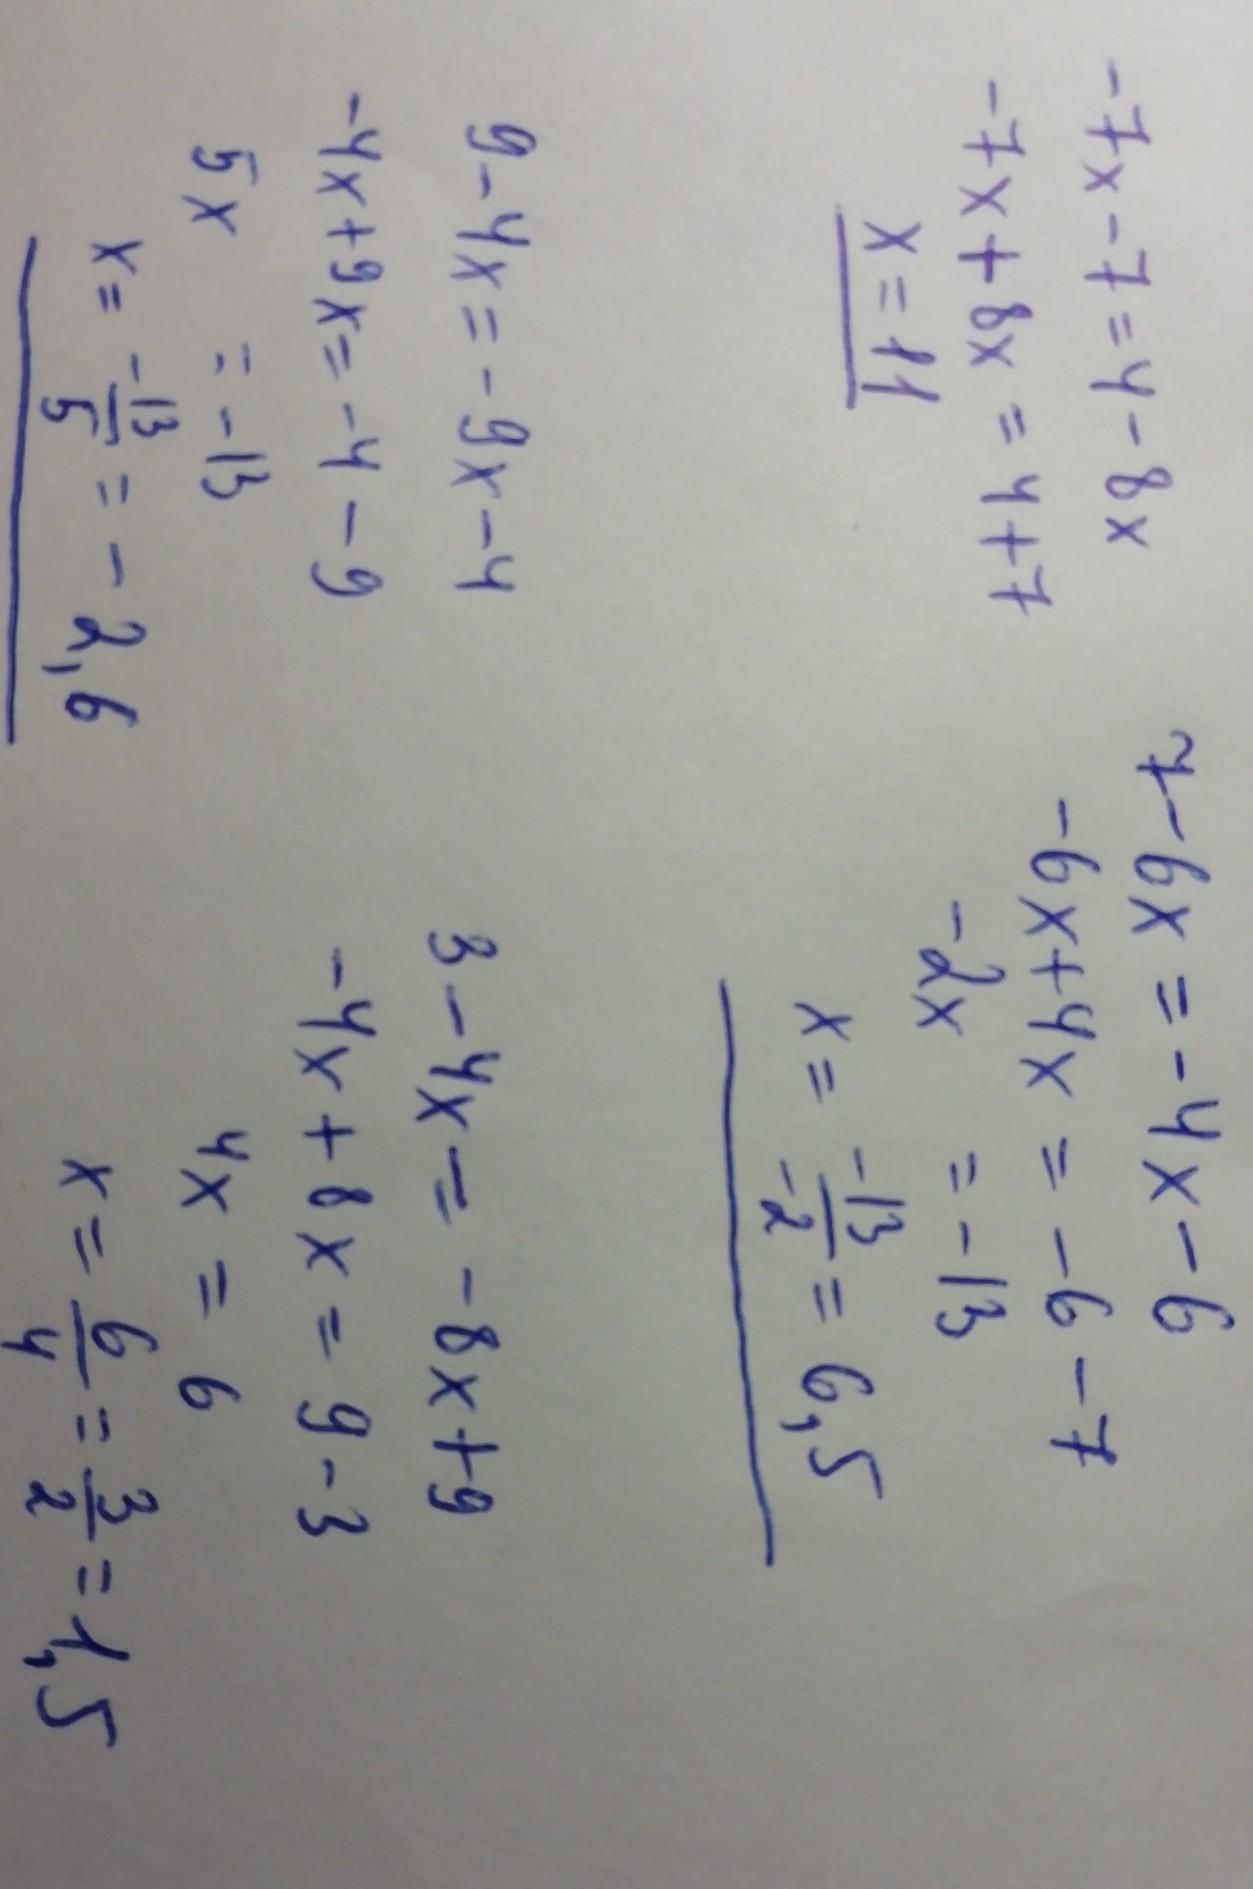 -7x-7=4-8x
-7x+8x=4+7
x=11
7-6x=-4x-6
-6x+4x=-6-7
-2x=-13
x=-13/-2=6,5
9-4x=-9x-4
-4x+9x=-4-9
5x=-13
x=-13/5=-2,6
3-4x=-8x+9
-4x+8x=9-3
4x=6
x=6/4=3/2=1,5